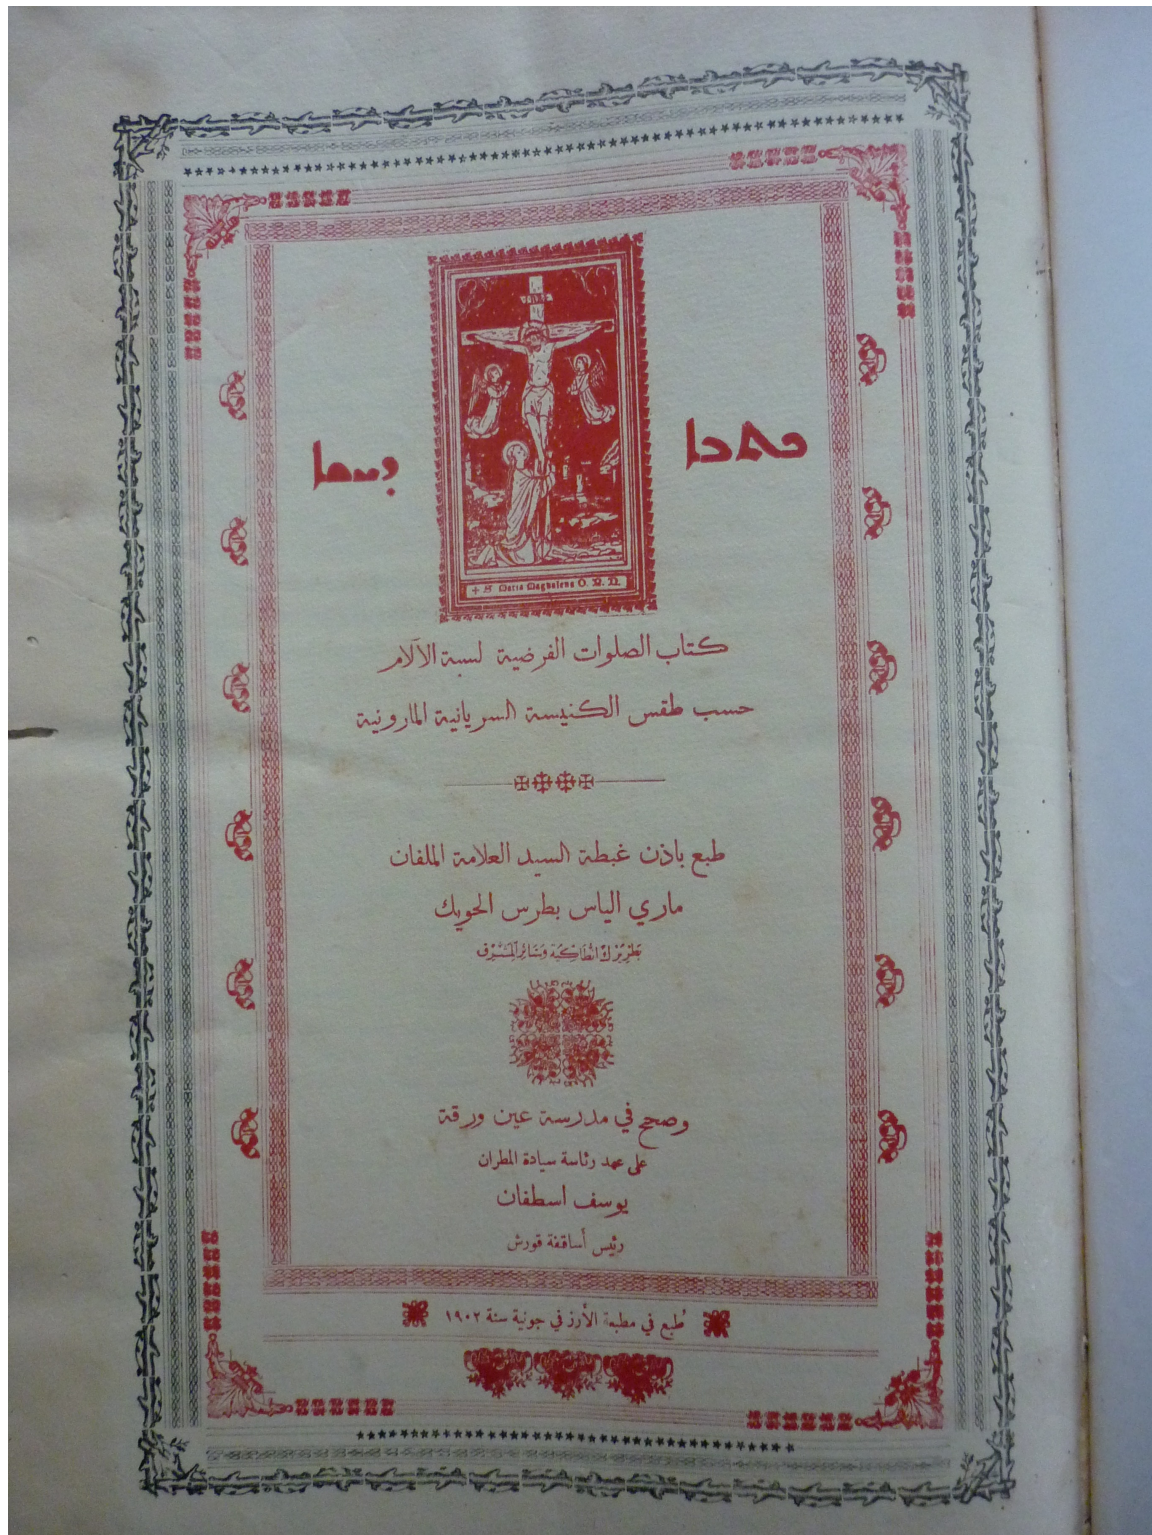 ܟܬܒܐ ܕܚܫܐ
+ S Maria Magdalena O. P. N.
كتاب الصلوات الفرضية لسبة الآلام
حسب طقس الكنيسة السريانية المارونية
طبع باذن غبطة السيد العلامة الملفان
ماري الياس بطرس الحويك
بَطْرِيَرْكْ انْطَاكِيَة وَسَائِر الْمَشْرِق
وصحح في مدرسة عين ورقة
على عهد رئاسة سيادة المطران
يوسف اسطفان
رئيس أساقفة قورش
طُبع في مطبعة الأرز في جونية سنة ١٩٠٢